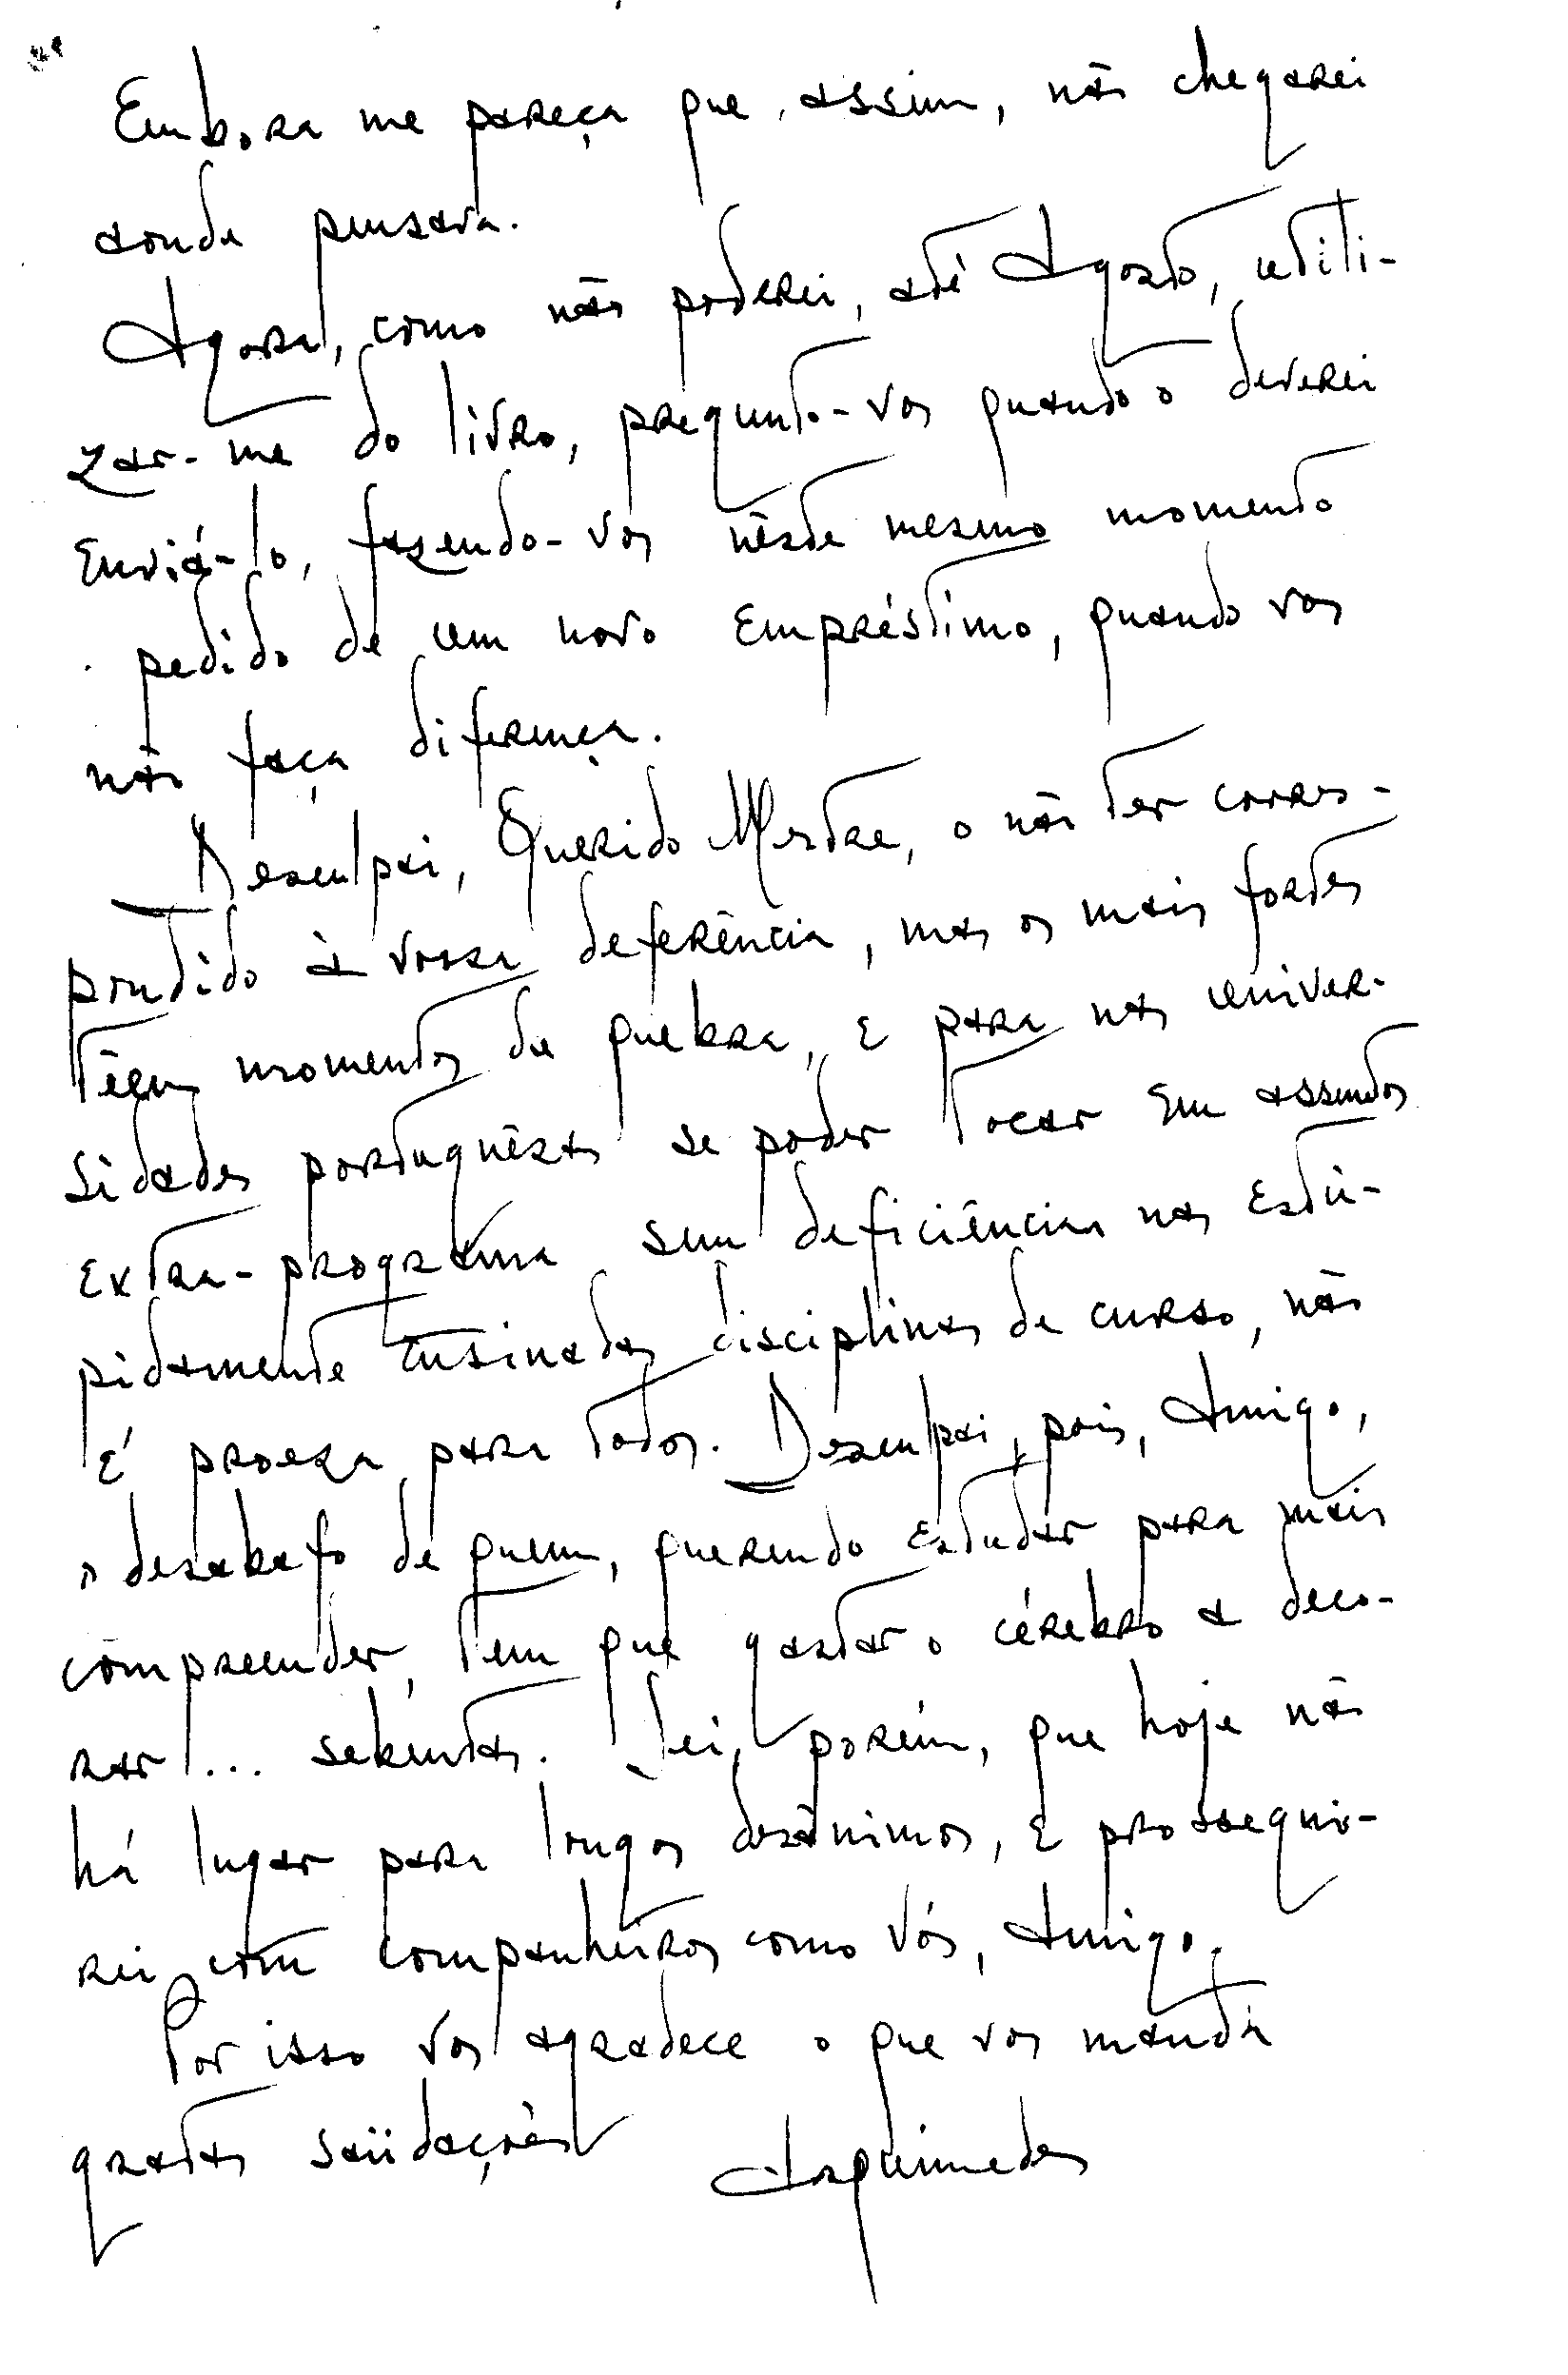 Embora me pareça que, assim, não chegarei
aonde pensava.
Agora, como não poderei, até Agosto, utili-
zar-me do livro, pregunto-vos quando o deverei
enviá-lo, fazendo-vos nêste mesmo momento
pedido de um novo empréstimo, quando vos
não faça diferença.
Desculpai, Querido Mestre, o não ter corres-
pondido à vossa deferência, mas os mais fortes
têem momentos de quebra, e para nas univer-
sidades portuguêsas se poder tocar em assuntos
extra-programa sem deficiências nas estù-
pidamente ensinadas disciplinas de curso, não
é proeza para todos. Desculpai, pois, Amigo,
o desabafo de quem, querendo estudar para mais
compreender, tem que gastar o cérebro a deco-
rar!... sebentas. Sei, porém, que hoje não
há lugar para longos desânimos, e prosseguï-
rei com companheiros como vós, Amigo.
Por isso vos agradece o que vos manda
gratas saüdações Arquimedes